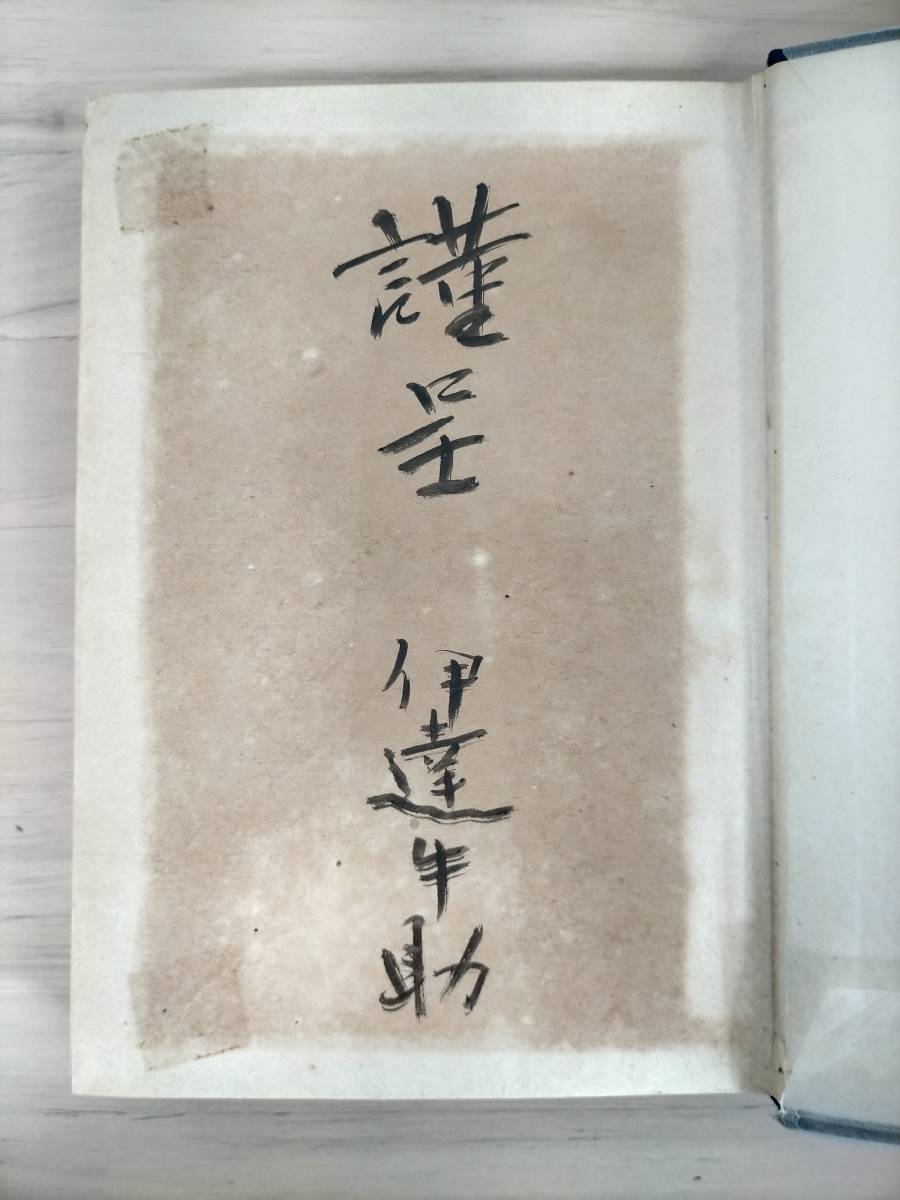 謹呈
伊達牛助